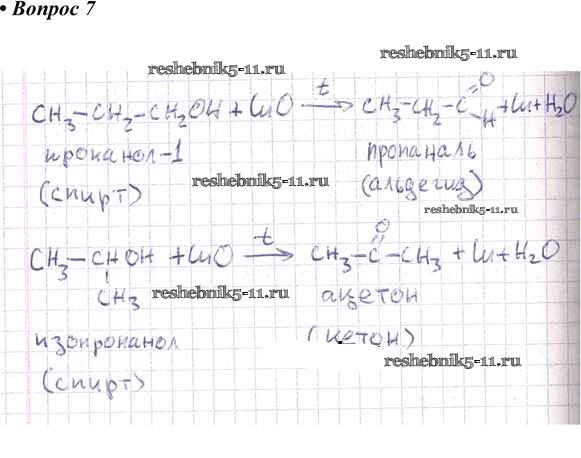 • Вопрос 7
reshebnik5-11.ru
reshebnik5-11.ru
CH3–CH2–CH2OH + CuO —t→ CH3–CH2–C(=O)–H + Cu + H2O
пропанол-1 пропаналь
(спирт) reshebnik5-11.ru (альдегид)
reshebnik5-11.ru
CH3–CHOH + CuO —t→ CH3–C(=O)–CH3 + Cu + H2O
CH3 reshebnik5-11.ru ацетон
изопропанол (кетон)
reshebnik5-11.ru
(спирт)